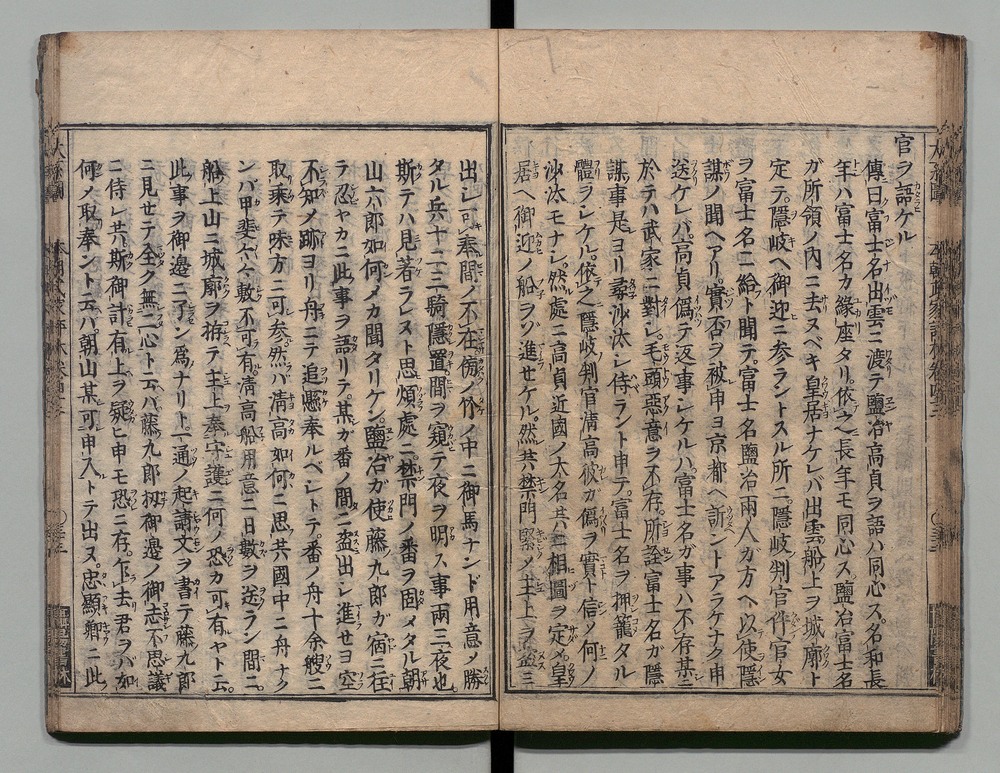 官ヲ語ケル
傳曰富士名出雲ニ渡テ鹽冶高貞ヲ語ハ同心ス名和長
年ハ富士名カ縁座タリ依之長年モ同心ス鹽冶富士名
ガ所領ノ内ニ去ヌベキ皇居ナケレバ出雲船上ヲ城廓ト
定テ隠岐ヘ御迎ニ参ラントスル所ニ隠岐判官件官女
ヲ富士名ニ給ト聞テ富士名鹽冶兩人が方ヘ以使隠
謀ノ聞ヘアリ實否ヲ被申ヨ京都ヘ訢ントアラケナク申
送ケレバ高貞偽テ返事シケルハ富士名ガ事ハ不存某ニ
於テハ武家ニ對シ毛頭惡意ヲ不存所詮富士名ガ隠
謀事是ヨリ尋沙汰シ侍ラント申テ富士名ヲ押籠タル
體ヲシケル依之隠岐判官清高彼カ偽ヲ實ト信メ何ノ
沙汰モナシ然處ニ高貞近國ノ大名共ニ相圖ヲ定メ皇
居ヘ御迎ノ船ヲゾ進セケル然共禁門緊メ主上ヲ盗ミ
出シ可奉間ノ不在傍ノ竹ノ中ニ御馬ナンド用意メ勝
タル兵十二三騎隱置間ヲ窺テ夜ヲ明ス事兩三夜也
斯テハ見著ラレヌト思煩處ニ禁門ノ番ヲ固メタル朝
山六郎如何メカ聞タリケン鹽冶ガ使藤九郎が宿ニ往
テ忍ヤカニ此事ヲ語リテ某ガ番ノ間ニ盗出シ進セヨ空
不知ノ跡ヨリ舟ニテ追懸奉ルベシトテ番ノ舟十余艘ニ
取乘テ味方ニ可参然バ清高如何ニ思共國中ニ舟ナク
ンバ甲斐ナケン敷不可有清高船用意ニ日數ヲ送ラン間ニ
船上山ニ城廓ヲ拵テ主上奉守護ニ何ノ恐カ可有ヤト云
此事ヲ御邊ニ了ン爲ナリト一通ノ起請文ヲ書テ藤九郎
ニ見セテ全ク無二心ト云バ藤九郎扨御邊ノ御志不思議
ニ侍レ共斯御計有上ヲ疑ヒ申モ恐ニ存乍去君ヲバ如
何メ取奉ント云バ朝山某可申入トテ出ヌ忠顯卿ニ此